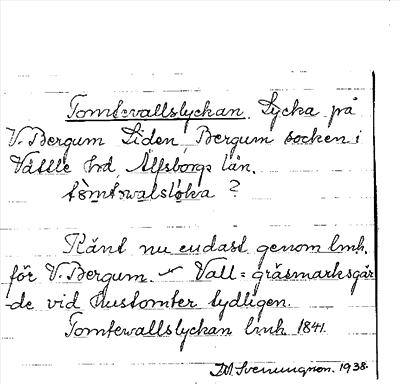 Tomtevallslyckan. Lycka på
V. Bergum Liden, Bergum socken i
Vättle hd, Älfsborgs län.
tòmtewalslỏka ?
Känt nu endast genom lmk.
för V. Bergum. – Vall = gräsmarksgär
-de vid hustomter tydligen.
Tomtewallslyckan lmk 1841.
Svenningson. 1938.